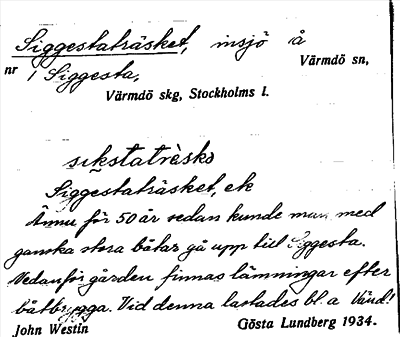 Siggestaträsket, insjö å
Värmdö sn,
nr 1 Siggesta,
Värmdö skg, Stockholms l.
sikstatrèsko
Siggestaträsket, ek
Ännu för 50 år sedan kunde man med
ganska stora båtar gå upp till Siggesta.
Nedanför gården finnas lämningar efter
båtbrygga. Vid denna lastades bl a Vänd!
John Westin Gösta Lundberg 1934.